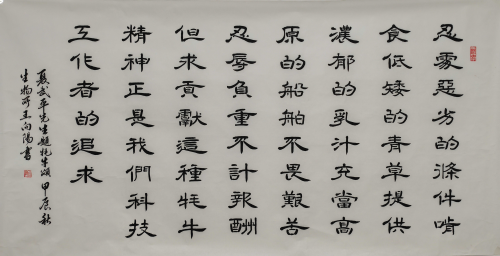 忍受惡劣的條件啃
食低矮的青草提供
濃郁的乳汁充當高
原的船舶不畏艱苦
忍辱負重不計報酬
但求貢獻這種牦牛
精神正是我們科技
工作者的追求
夏武平先生題牦牛頌 甲辰秋
生物所王向陽書